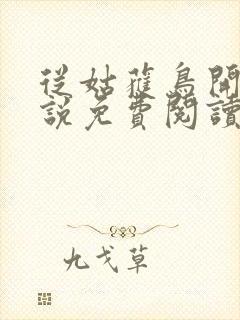 從姑蓷鳥開
說免費閱讀
九戈草